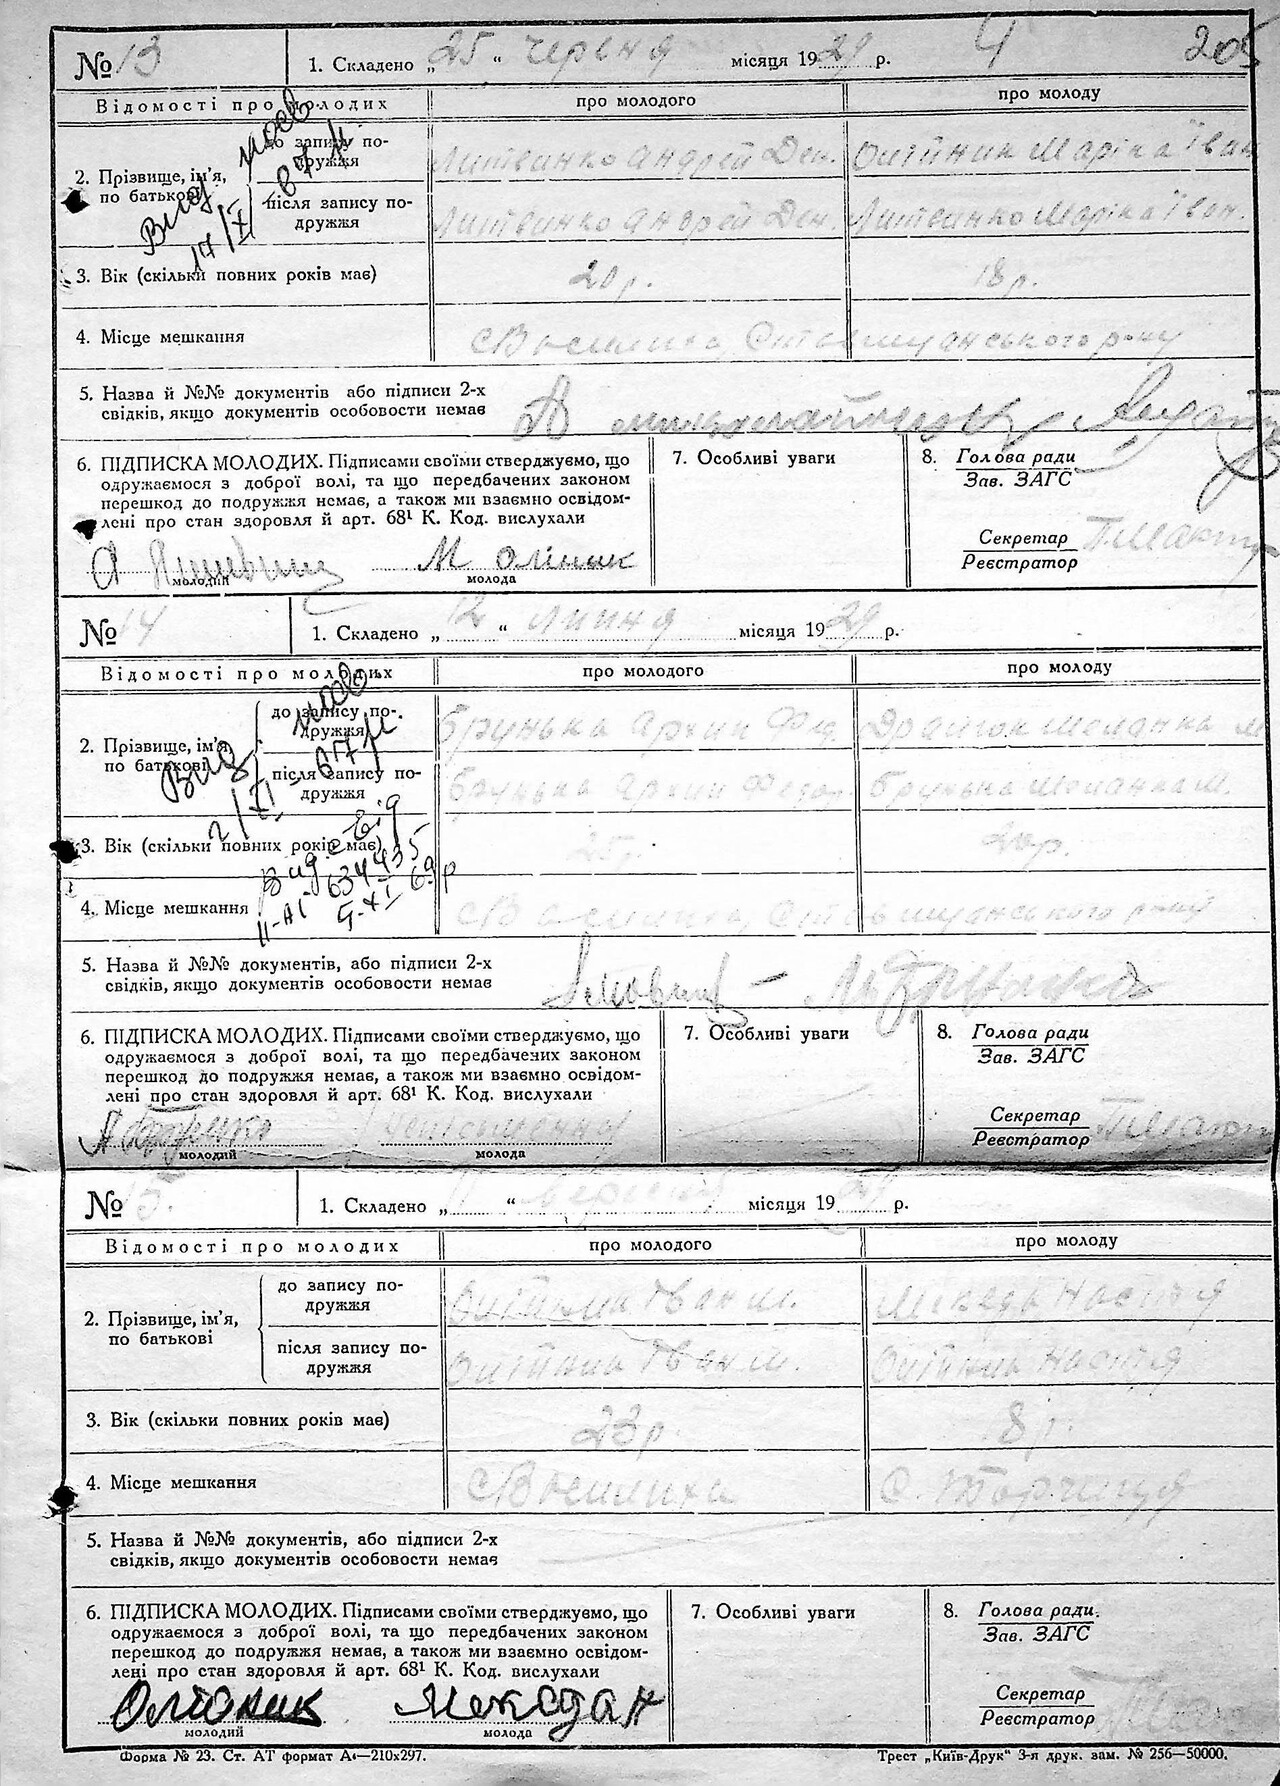 № 13
1. Складено „ 25 “ червня місяця 1929 р.
4
205
Відомості про молодих
про молодого
про молоду
2. Прізвище, ім'я, по батькові
до запису подружжя
Литвинко Андрей Ден.
Олійник Маріка Іван
після запису подружжя
Литвинко Андрей Ден.
Литвинко Маріка Іван.
17/XI 67
3. Вік (скільки повних років має)
20 р.
18 р.
4. Місце мешкання
с Василиха, Ставищанського р-ну
5. Назва й №№ документів або підписи 2-х
свідків, якщо документів особовости немає
6. ПІДПИСКА МОЛОДИХ. Підписами своїми стверджуємо, що
одружаємося з доброї волі, та що передбачених законом
перешкод до подружжя немає, а також ми взаємно освідом-
лені про стан здоров'я й арт. 68¹ К. Код. вислухали
М Олійник
молодий
молода
7. Особливі уваги
8. Голова ради
Зав. ЗАГС
Секретар
Реєстратор
№ 14
1. Складено „ 12 “ липня місяця 1929 р.
Відомості про молодих
про молодого
про молоду
2. Прізвище, ім'я, по батькові
до запису подружжя
Брунька Архип Фед.
Меланка М
після запису подружжя
Брунька Архип Федор.
Брунька Меланка М.
3. Вік (скільки повних років має)
25 р.
20 р.
634435
4. Місце мешкання
с Василиха, Ставищанського р-ну
5. Назва й №№ документів, або підписи 2-х
свідків, якщо документів особовости немає
6. ПІДПИСКА МОЛОДИХ. Підписами своїми стверджуємо, що
одружаємося з доброї волі, та що передбачених законом
перешкод до подружжя немає, а також ми взаємно освідом-
лені про стан здоров'я й арт. 68¹ К. Код. вислухали
молодий
молода
7. Особливі уваги
8. Голова ради
Зав. ЗАГС
Секретар
Реєстратор
№ 15.
1. Складено „ “ вересня місяця 1929 р.
Відомості про молодих
про молодого
про молоду
2. Прізвище, ім'я, по батькові
до запису подружжя
Олійник Іван М.
Мекеда Настя
після запису подружжя
Олійник Іван М.
Олійник Настя
3. Вік (скільки повних років має)
23 р.
18 р.
4. Місце мешкання
с Василиха
с. Торчиця
5. Назва й №№ документів, або підписи 2-х
свідків, якщо документів особовости немає
6. ПІДПИСКА МОЛОДИХ. Підписами своїми стверджуємо, що
одружаємося з доброї волі, та що передбачених законом
перешкод до подружжя немає, а також ми взаємно освідом-
лені про стан здоров'я й арт. 68¹ К. Код. вислухали
Олійник
Мекеда Н
молодий
молода
7. Особливі уваги
8. Голова ради.
Зав. ЗАГС
Секретар
Реєстратор
Форма № 23. Ст. АТ формат А4—210х297.
Трест „Київ-Друк“ 3-я друк. зам. № 256—50000.